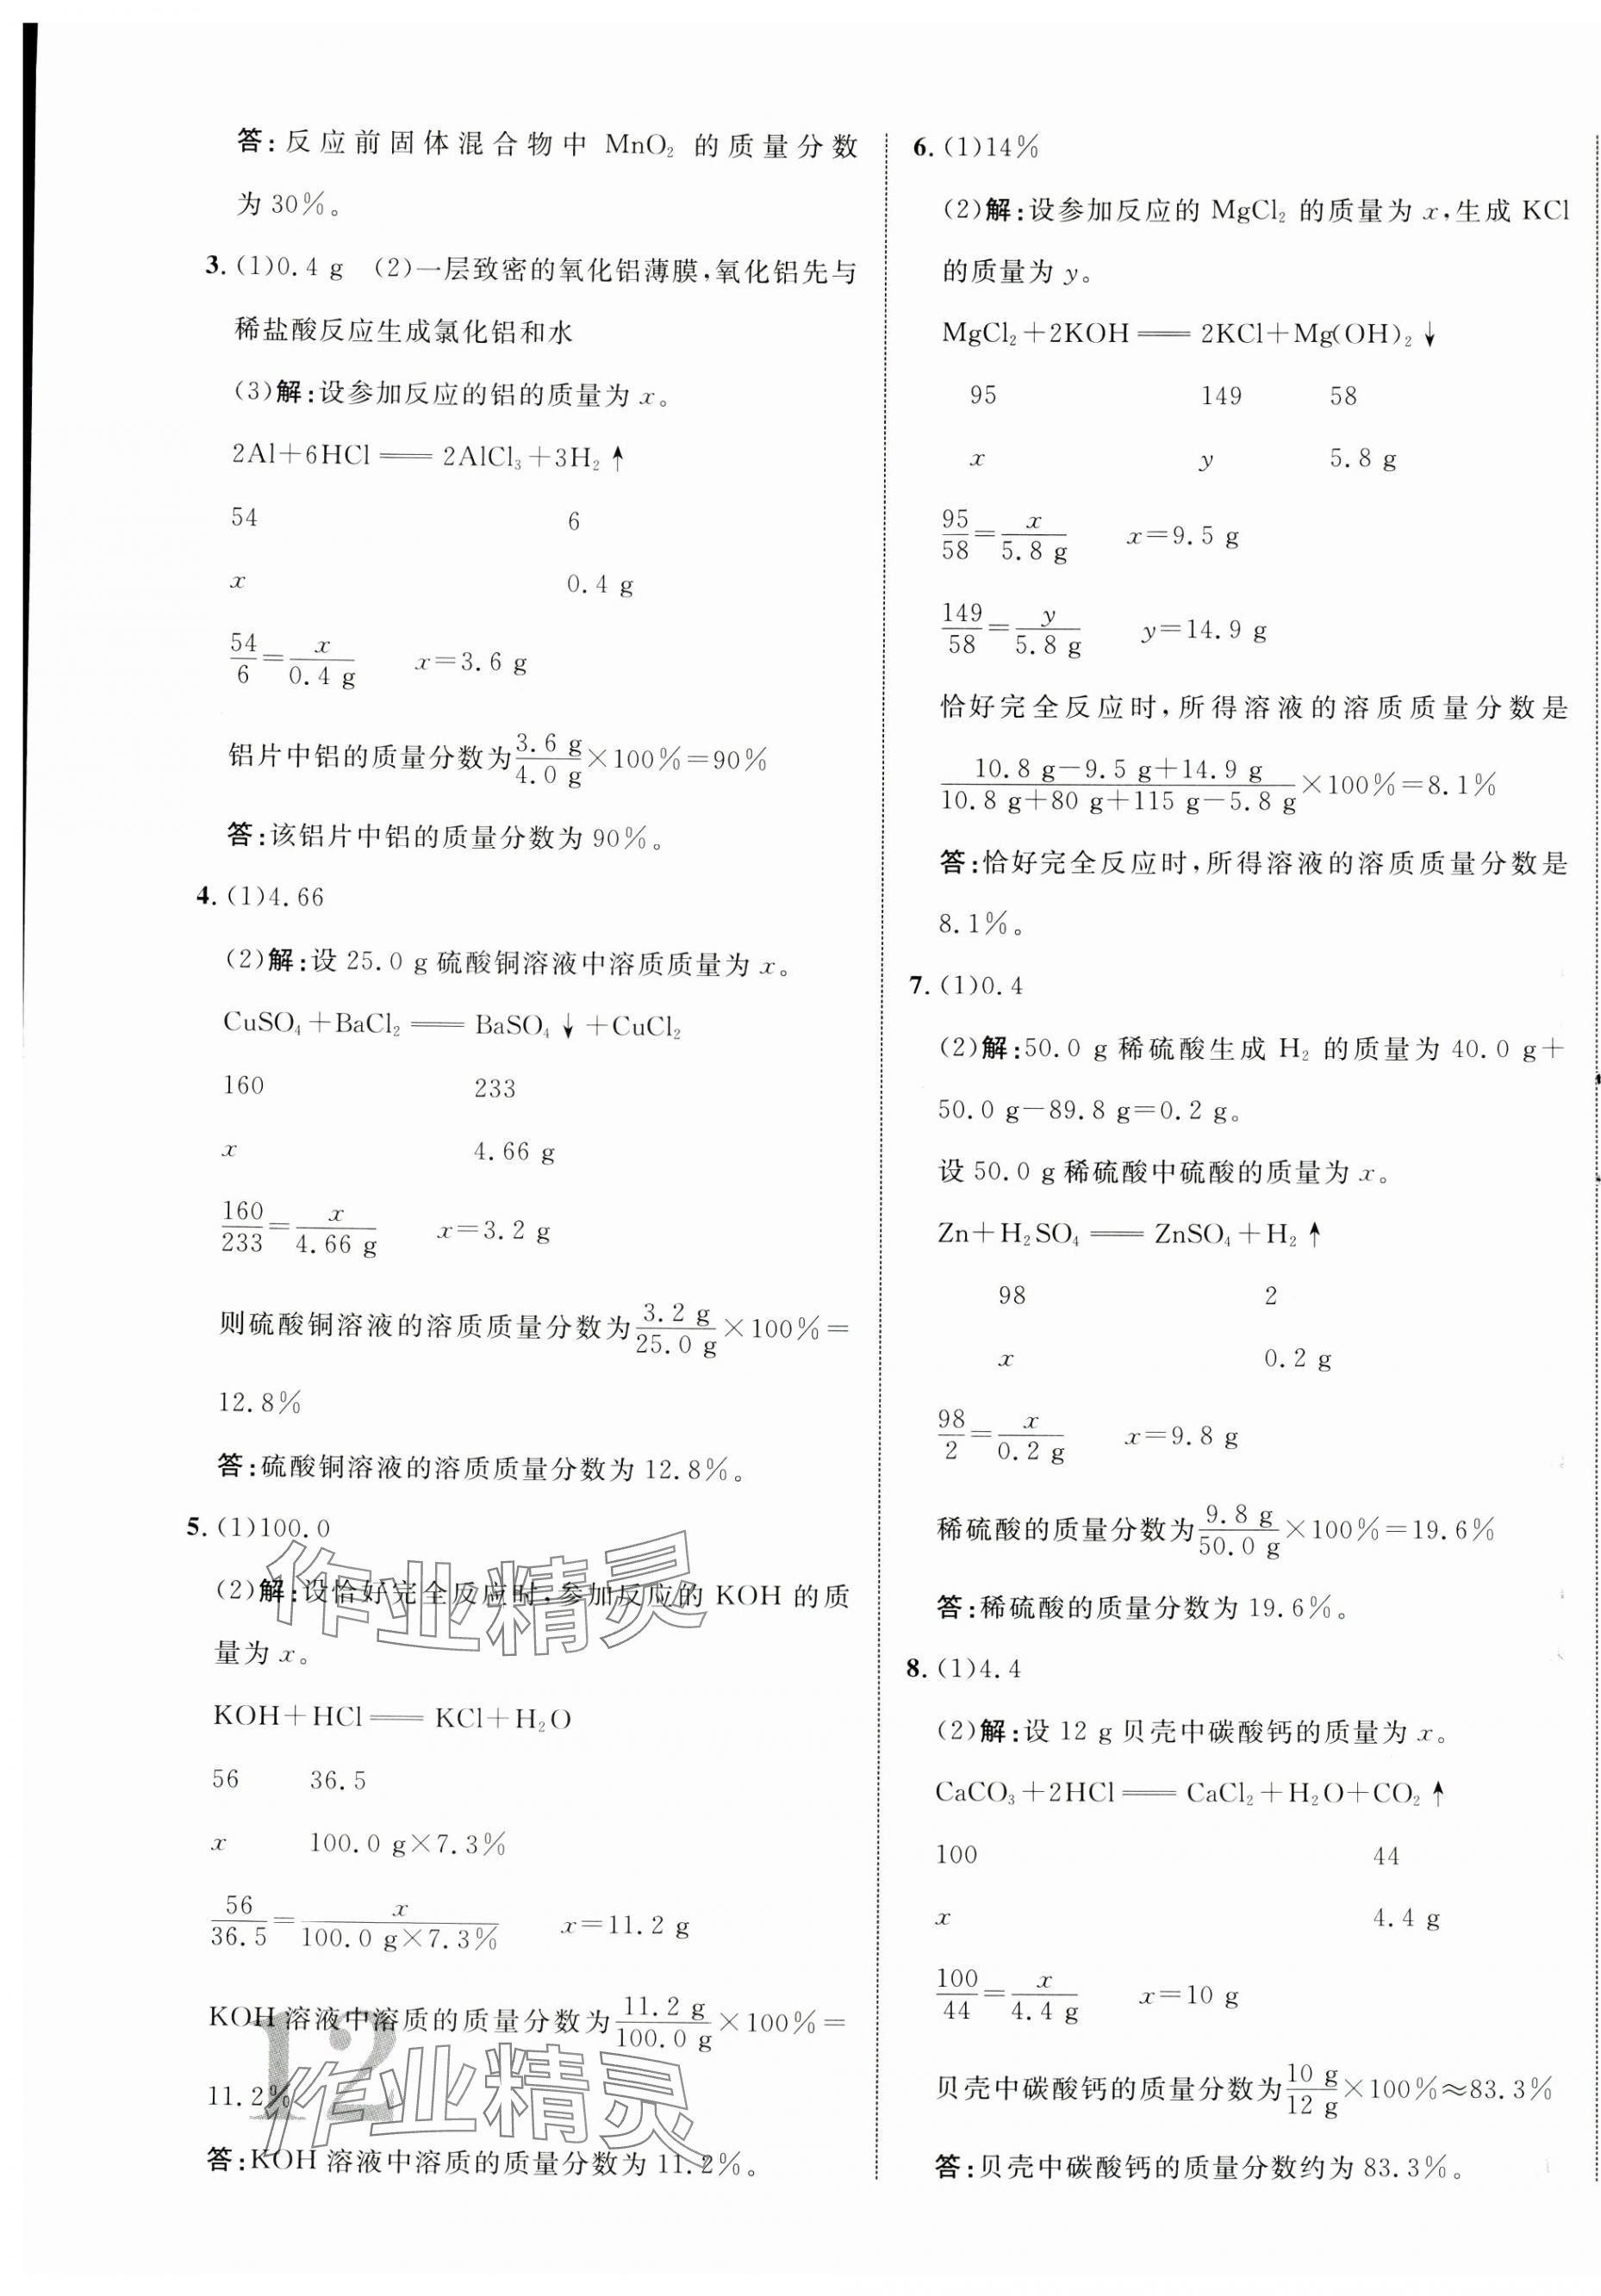 答:反应前固体混合物中 MnO₂ 的质量分数
为 30%。
3. (1)0.4 g (2)一层致密的氧化铝薄膜,氧化铝先与
稀盐酸反应生成氯化铝和水
(3)解:设参加反应的铝的质量为 x。
2Al+6HCl══2AlCl₃+3H₂↑
54 6
x 0.4 g
54/6=x/0.4 g x=3.6 g
铝片中铝的质量分数为3.6 g/4.0 g×100%=90%
答:该铝片中铝的质量分数为 90%。
4. (1)4.66
(2)解:设 25.0 g 硫酸铜溶液中溶质质量为 x。
CuSO₄+BaCl₂══BaSO₄↓+CuCl₂
160 233
x 4.66 g
160/233=x/4.66 g x=3.2 g
则硫酸铜溶液的溶质质量分数为3.2 g/25.0 g×100%=
12.8%
答:硫酸铜溶液的溶质质量分数为 12.8%。
5. (1)100.0
(2)解:设恰好完全反应时,参加反应的 KOH 的质
量为 x。
KOH+HCl══KCl+H₂O
56 36.5
x 100.0 g×7.3%
56/36.5=x/100.0 g×7.3% x=11.2 g
KOH 溶液中溶质的质量分数为11.2 g/100.0 g×100%=
11.2%
答:KOH 溶液中溶质的质量分数为 11.2%。
作业精灵
12
作业精灵
6. (1)14%
(2)解:设参加反应的 MgCl₂ 的质量为 x,生成 KCl
的质量为 y。
MgCl₂+2KOH══2KCl+Mg(OH)₂↓
95 149 58
x y 5.8 g
95/58=x/5.8 g x=9.5 g
149/58=y/5.8 g y=14.9 g
恰好完全反应时,所得溶液的溶质质量分数是
10.8 g-9.5 g+14.9 g/10.8 g+80 g+115 g-5.8 g×100%=8.1%
答:恰好完全反应时,所得溶液的溶质质量分数是
8.1%。
7. (1)0.4
(2)解:50.0 g 稀硫酸生成 H₂ 的质量为 40.0 g+
50.0 g-89.8 g=0.2 g。
设 50.0 g 稀硫酸中硫酸的质量为 x。
Zn+H₂SO₄══ZnSO₄+H₂↑
98 2
x 0.2 g
98/2=x/0.2 g x=9.8 g
稀硫酸的质量分数为9.8 g/50.0 g×100%=19.6%
答:稀硫酸的质量分数为 19.6%。
8. (1)4.4
(2)解:设 12 g 贝壳中碳酸钙的质量为 x。
CaCO₃+2HCl══CaCl₂+H₂O+CO₂↑
100 44
x 4.4 g
100/44=x/4.4 g x=10 g
贝壳中碳酸钙的质量分数为10 g/12 g×100%≈83.3%
答:贝壳中碳酸钙的质量分数约为 83.3%。